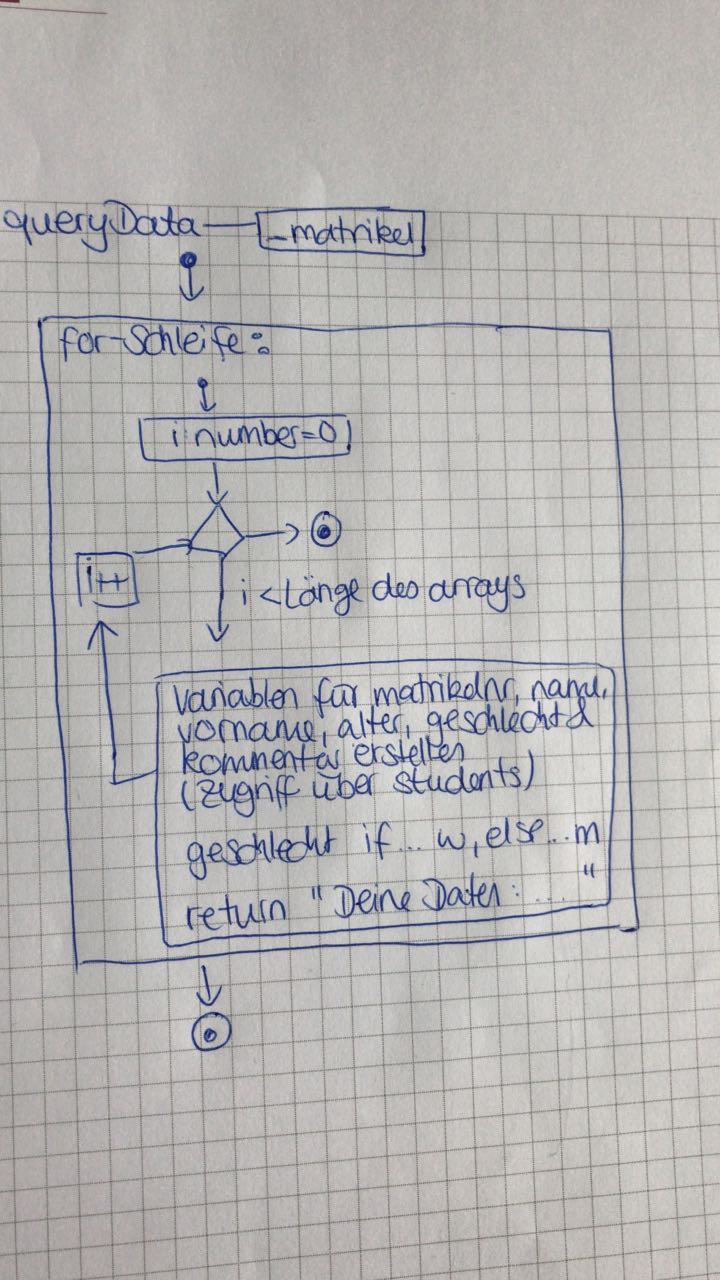 queryData
_matrikel
for-Schleife:
i number=0
i++
i < Länge des arrays
Variablen für matrikelnr, name,
vorname, alter, geschlecht &
kommentar erstellen
(Zugriff über students)
geschlecht if... w, else...m
return "Deine Daten: .... "